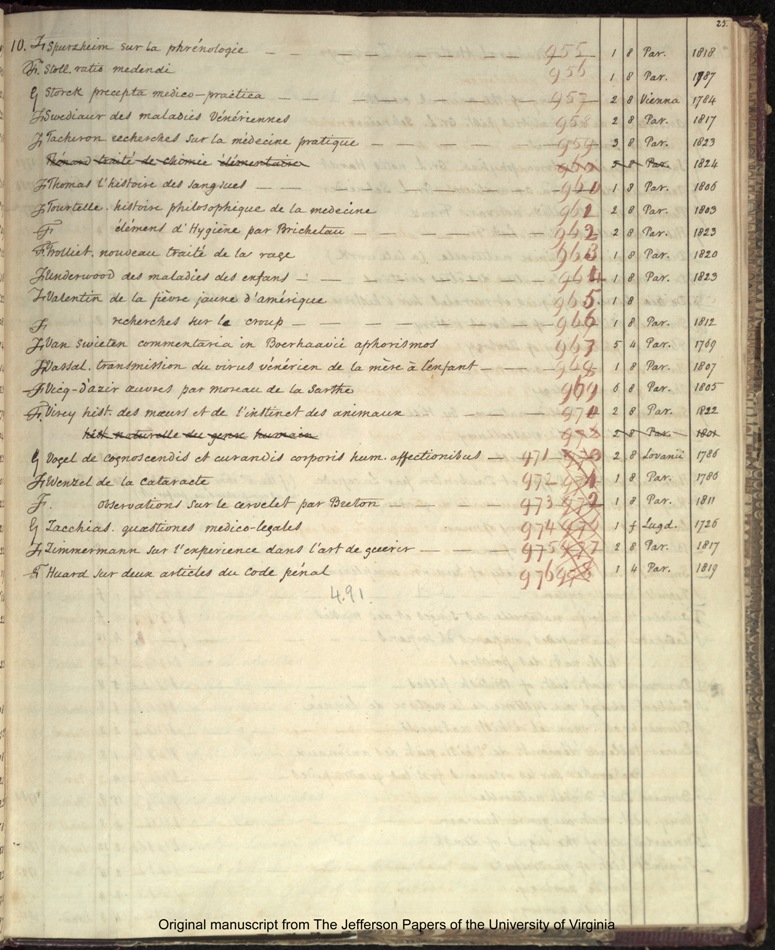 25.
10. F Spurzheim sur la phrénologie — 955 1 8 Par. 1818
F. Stoll. ratio medendi 956 1 8 Par. 1787
G Storck precepta medico-practica — 957 2 8 Vienna 1784
F Swediaur des maladies Vénériennes 958 2 8 Par. 1817
F Tacheron recherches sur la médecine pratique — 959 3 8 Par. 1823
Thénard traité de chimie élémentaire 5 8 Par. 1824
F Thomas l'histoire des sangsues — 960 1 8 Par. 1806
F Tourtelle. histoire philosophique de la medecine 961 2 8 Par. 1803
F élémens d'Hygiène par Bricheteau — 962 2 8 Par. 1823
F Trolliet. nouveau traité de la rage 963 1 8 Par. 1820
F Underwood des maladies des enfans — 964 1 8 Par. 1823
F Valentin de la fièvre jaune d'amérique 965 1 8
F recherches sur le croup — 966 1 8 Par. 1812
F Van Swieten commentaria in Boerhaavii aphorismos 967 5 4 Par. 1769
F Vassal. transmission du virus vénérien de la mère à l'enfant — 968 1 8 Par. 1807
F Vicq-d'azir œuvres par moreau de la Sarthe 969 6 8 Par. 1805
F. Virey hist. des mœurs et de l'instinct des animaux 970 2 8 Par. 1822
hist. naturelle du genre humain 2 8 Par 1801
G Vogel de cognoscendis et curandis corporis hum. affectionibus — 971 2 8 Lovanii 1786
F Wenzel de la cataracte 972 1 8 Par. 1786
F. observations sur le cervelet par Breton — 973 1 8 Par. 1811
G Zacchias. quæstiones medico-legales 974 1 f Lugd. 1726
F Zimmermann sur l'experience dans l'art de guérir — 975 2 8 Par. 1817
F Huard sur deux articles du Code pénal 976 1 4 Par. 1819
491.
Original manuscript from The Jefferson Papers of the University of Virginia